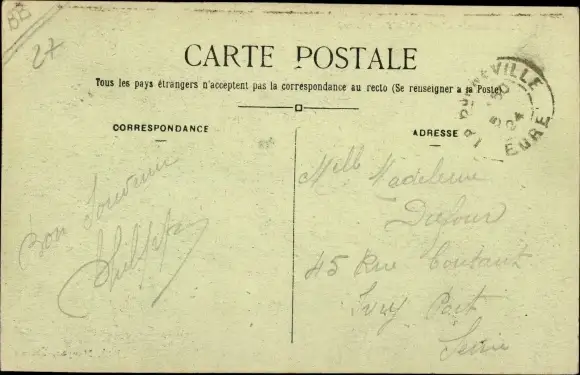 88
27
CARTE POSTALE
Tous les pays étrangers n'acceptent pas la correspondance au recto (Se renseigner à la Poste)
CORRESPONDANCE
ADRESSE
EURE
Bon Souvenir
Melle Madeleine
Dufour
45 Rue Coutant
Ivry Port
Seine